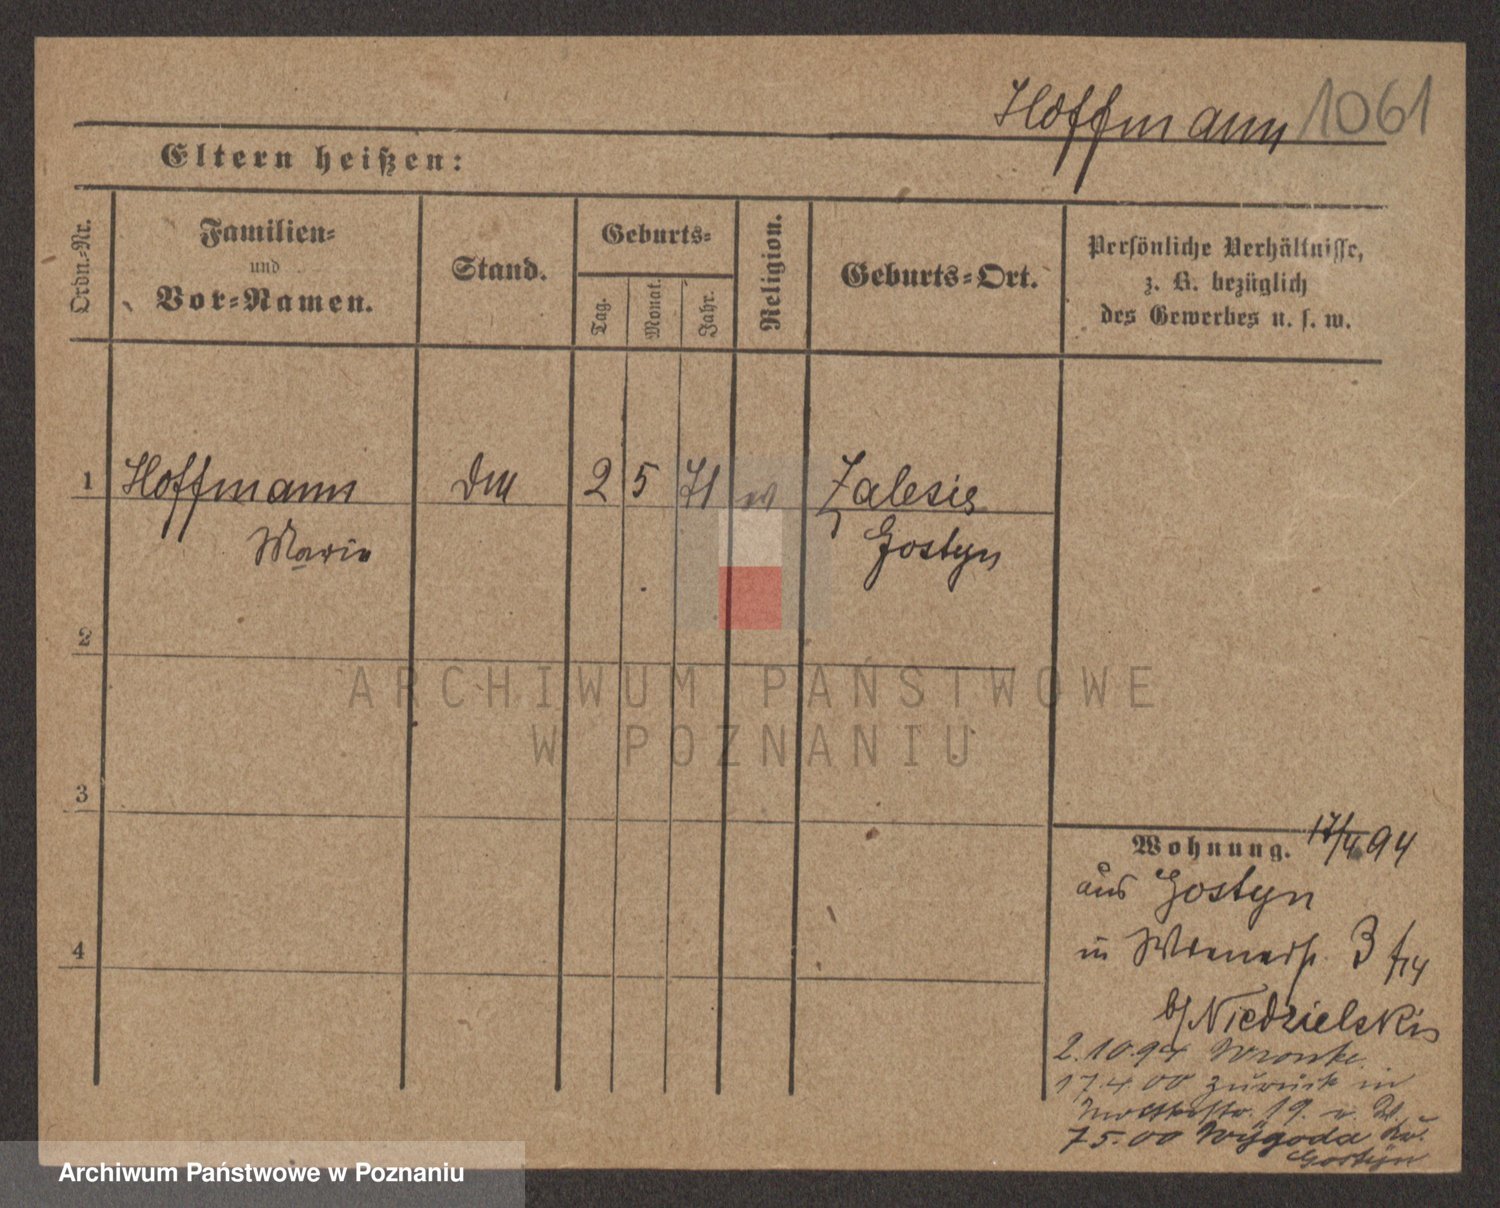 Hoffmann 1061
Eltern heißen:
Ordn.-Nr.
Familien-
und
Vor-Namen.
Stand.
Geburts-
Tag.
Monat.
Jahr.
Religion.
Geburts-Ort.
Persönliche Verhältnisse,
z. B. bezüglich
des Gewerbes u. s. w.
1 Hoffmann 2 5 71 Zalesie
Marie Gostyn
2
3
4
Wohnung. 17/4 94
aus Gostyn
in 3
b/ Niedzielskis
2.10.94 Wronke.
17.4.00 zurück in
19.
7.5.00 Wygoda
Gostyn
ARCHIWUM PAŃSTWOWE
W POZNANIU
Archiwum Państwowe w Poznaniu